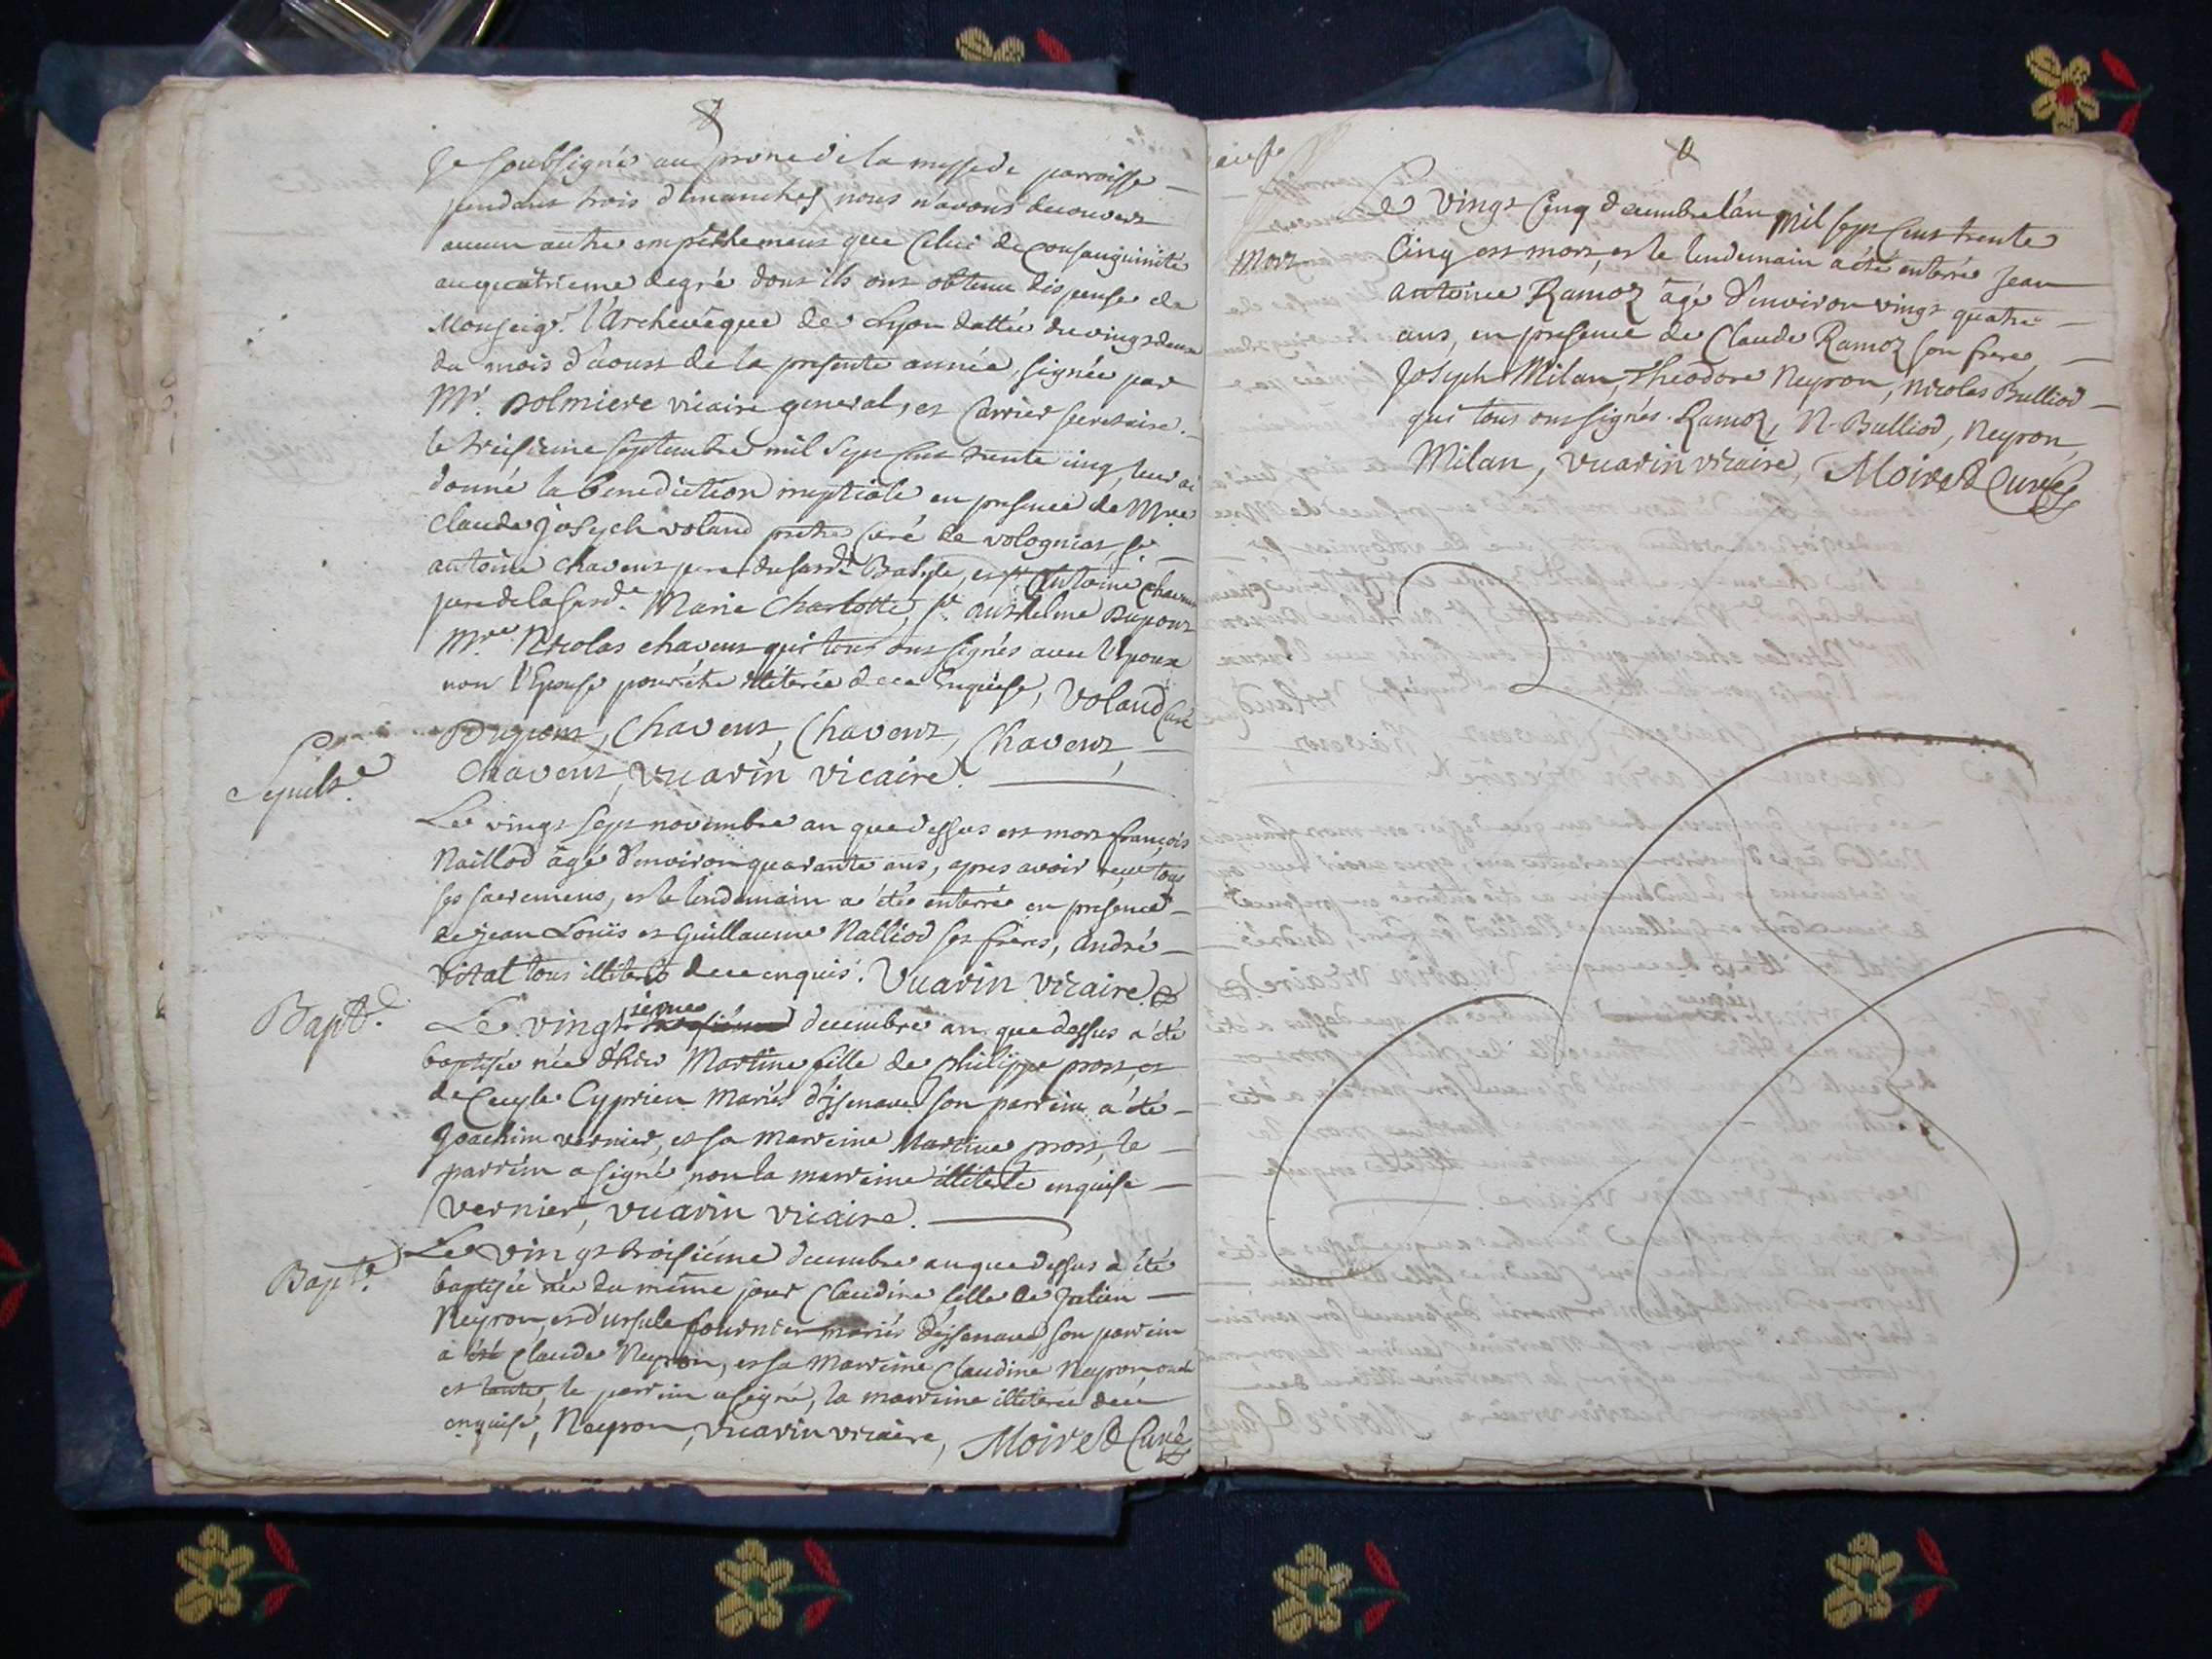 je soubsigné au prone de la messe de parroisse
pendant trois dimanches, nous n'avons decouvert
aucun autre empéchement que celui de consanguinité
au quatrieme degré dont ils ont obtenu dispense de
Monseigr. l'Archevêque de Lyon dattée du vingt deux
du mois d'aoust de la presente année, signée par
Mr. Dolmiere vicaire general, et Carrier secretaire.
le treisieme septembre mil sept cent trente cinq, leur ai
donné la benediction nuptiale en presence de Mre
Claude joseph voland prêtre curé de volognat, sr
antoine chavent pere dususd. Basyle, et sr Antoine chavent
pere de la susde. Marie Charlotte, sr. anthelme Dupont
Mre. Nicolas chavent qui tous ont signés avec l'Epoux
non l'Epouse pour être illiterée de ce Enquise, Voland Curé
Dupont, Chavent, Chavent, Chavent,
chavent, vuarin vicaire.
Sepult.e
Le vingt sept novembre an que dessus est mort françois
Nailliod âgé d'environ quarante ans, apres avoir reçu tous
ses sacremens, et le lendemain a été enterré en presence
de jean Louïs et Guillaume Nalliod ses freres, André
vital tous illiterés de ce enquis. Vuarin vicaire.
Bapt.e
Le vingtieme decembre an que dessus a été
baptisée née d'hier Martine fille de Philippe prost, et
de Cecyle Cyprien Mariés d'jzenave son parrein a été
Joachim vernier, et sa marreine Martine prost, le
parrein a signé, non la marreine illiterée enquise
vernier, vuarin vicaire.
Bapt.e
Le vingt troisiéme decembre an que dessus a été
baptisée née du même jour Claudine fille de Julien
Neyron, et d'ursule fournier mariés d'jzenave, son parrein
a été Claude Neyron, et sa Marreine Claudine Neyron, oncle
et tante, le parrein a signé, la marreine illiterée de ce
enquise, Neyron, vuarin vicaire, Moiret Curé
Mort
Le vingt cinq decembre l'an mil sept cent trente
cinq est mort, et le lendemain a été enterré Jean
antoine Ramoz âgé d'environ vingt quatre
ans, en presence de Claude Ramoz son frere,
Joseph Milan, Theodore Neyron, Nicolas Bulliod
qui tous ont signés. Ramoz, N. Bulliod, Neyron,
Milan, vuarin vicaire, Moiret Curé